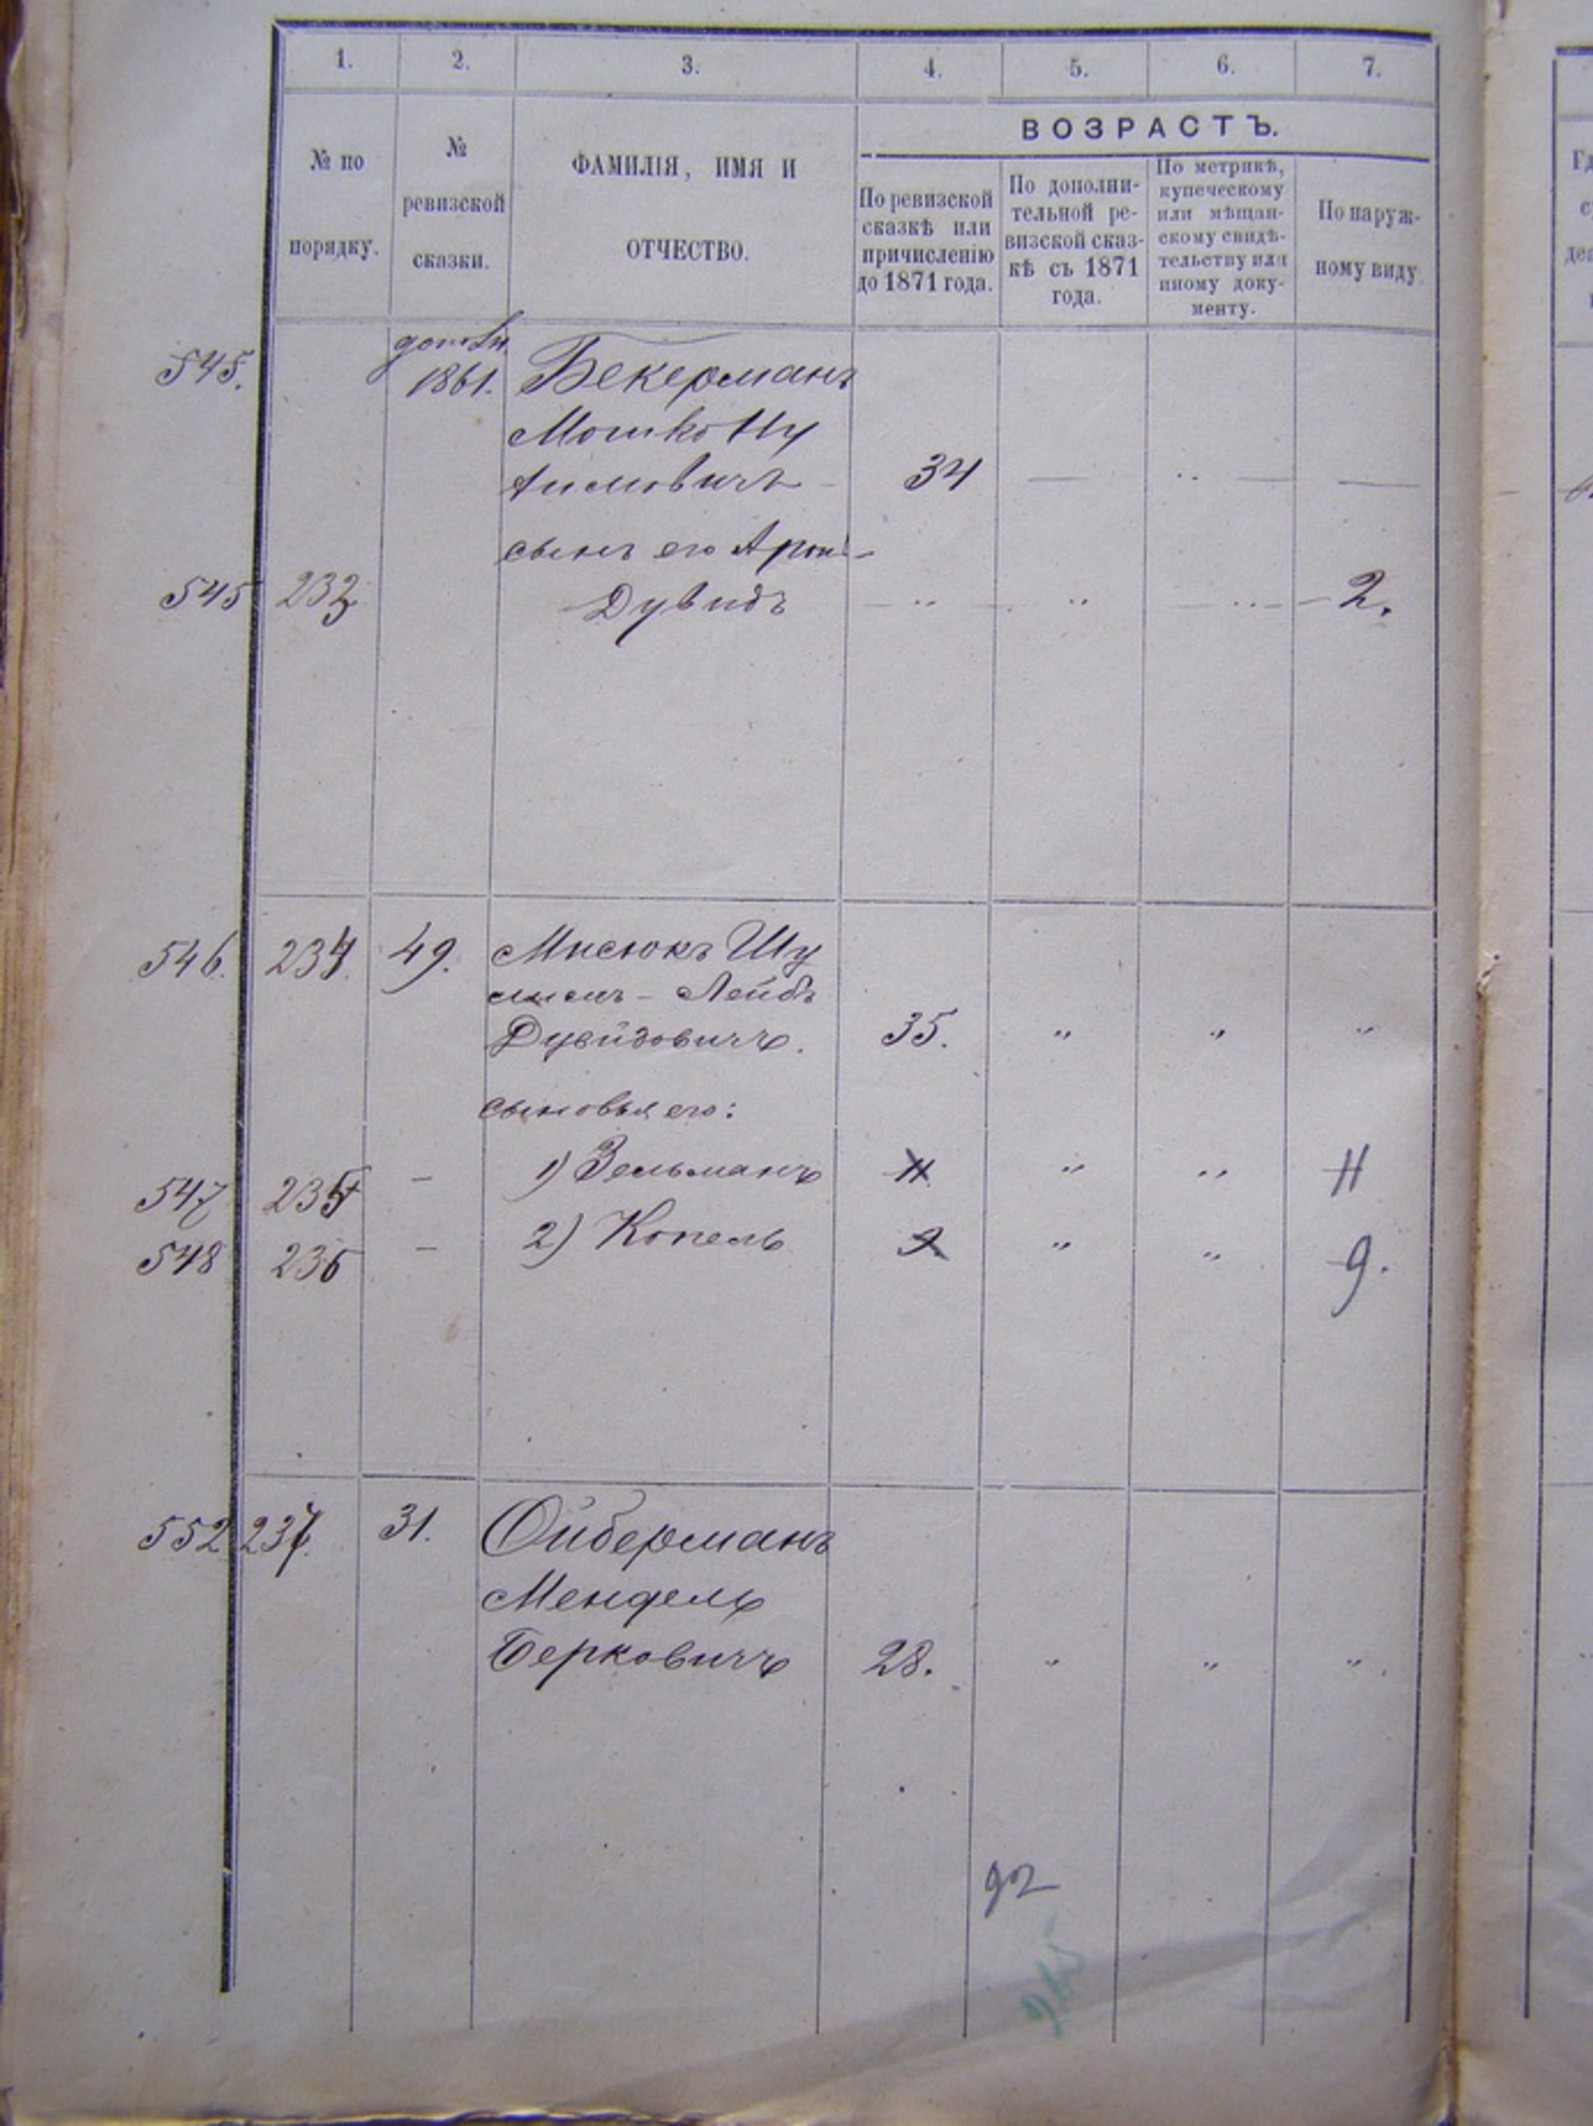 1. 2. 3. 4. 5. 6. 7.
№ по порядку.
№ ревизской сказки.
ФАМИЛІЯ, ИМЯ И
ОТЧЕСТВО.
ВОЗРАСТЪ.
По ревизской
сказкѣ или
причисленію
до 1871 года.
По дополни-
тельной ре-
визской сказ-
кѣ съ 1871
года.
По метрикѣ,
купеческому
или мѣщан-
скому свидѣ-
тельству или
иному доку-
менту.
По наруж-
ному виду.
545. 1861. Бекерманъ
Мошко Ну
химовичъ 34 — „ — —
сынъ его Арон-
545 233 Дувидъ — „ — „ — „ — 2.
546. 234. 49. Мисюкъ Шу
лимъ - Лейбъ
Дувидовичъ. 35. „ „ „
сыновья его:
547 235 — 1) Зельманъ 11 „ „ 11
548 236 — 2) Копель 9 „ „ 9.
552 237. 31. Ойберманъ
Мендель
Берковичъ 28. „ „ „
92